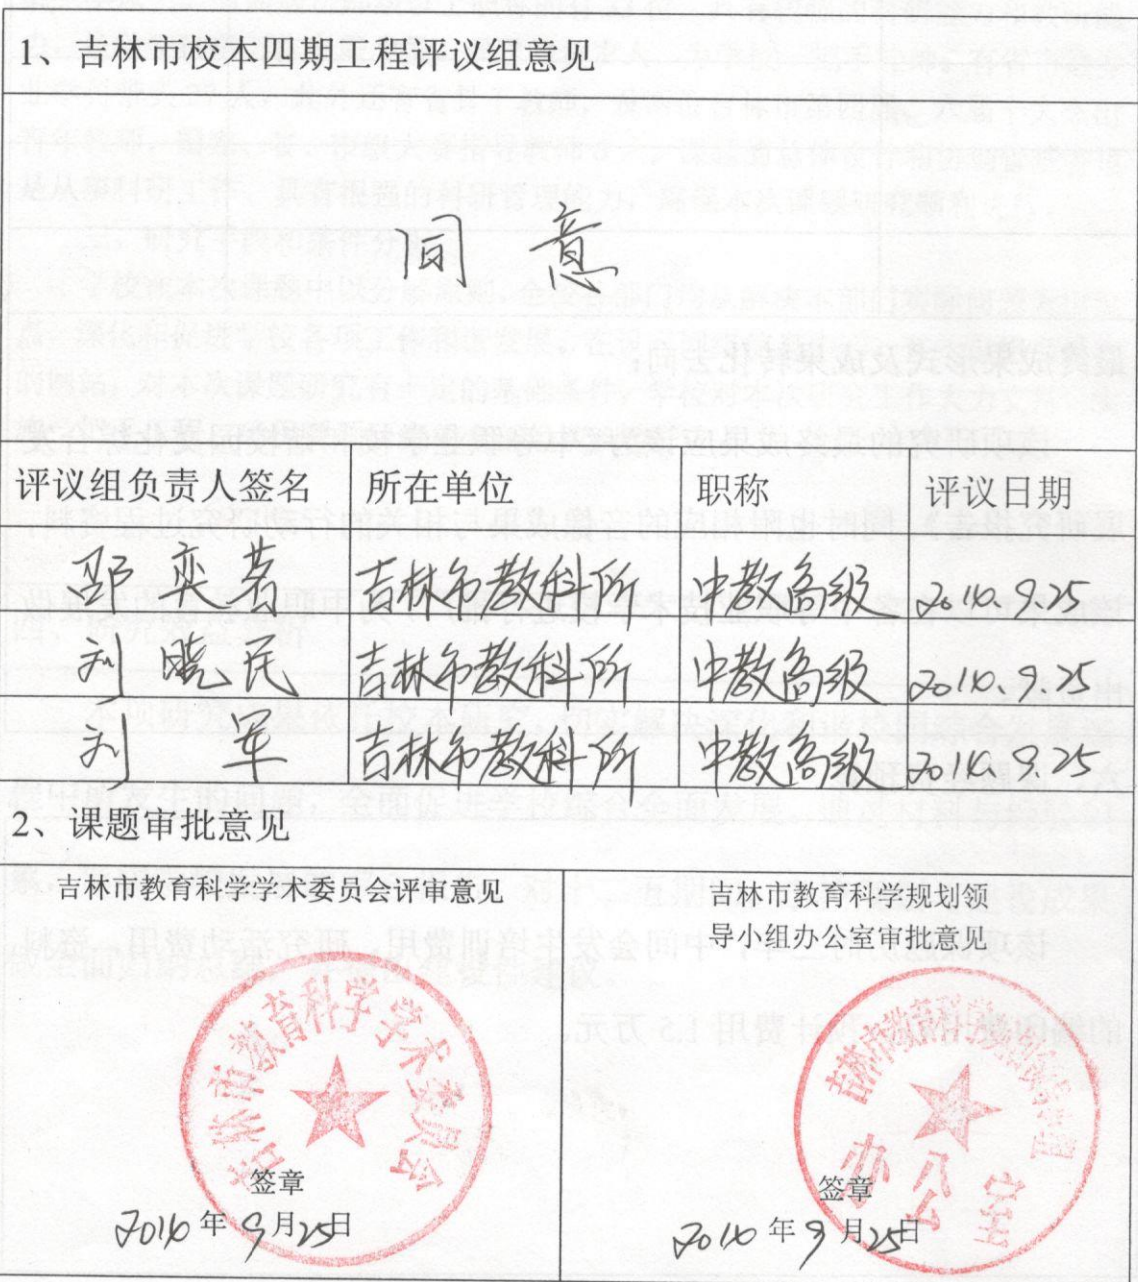 1、吉林市校本四期工程评议组意见
同意
评议组负责人签名 所在单位 职称 评议日期
邓奕茗 吉林市教科所 中教高级 2016.9.25
刘晓民 吉林市教科所 中教高级 2016.9.25
刘军 吉林市教科所 中教高级 2016.9.25
2、课题审批意见
吉林市教育科学学术委员会评审意见
吉林市教育科学学术委员会
签章
2016年9月25日
吉林市教育科学规划领
导小组办公室审批意见
吉林市教育科学规划领导小组
办公室
签章
2016年9月25日